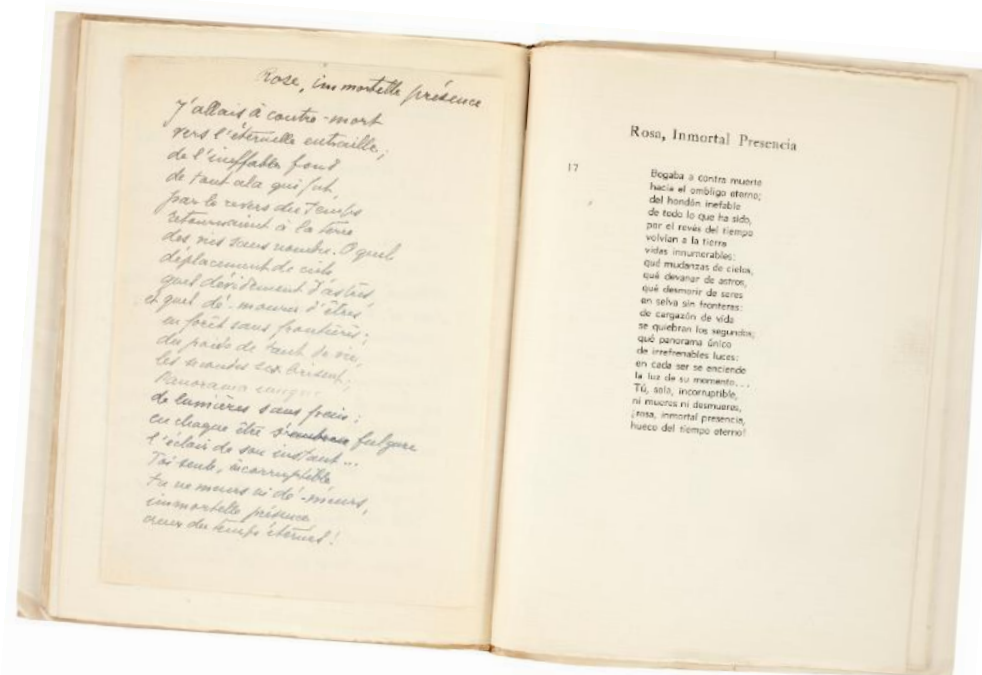 Rose, immortelle présence
J'allais à contre-mort
vers l'éternelle entraille;
de l'ineffable fond
de tout cela qui fut,
par le revers des temps
retournaient à la terre
des vies sans nombre. O quel
déplacement de ciels
quel dévidement d'astres,
et quel dé-mourir d'êtres
en forêt sans frontières;
du poids de tant de vie,
les se brisent;
Panorama unique
de lumières sans frein;
en chaque être fulgure
l'éclair de son instant...
Toi seule, incorruptible
tu ne meurs ni dé-meurs,
immortelle présence
creux du temps éternel!
Rosa, Inmortal Presencia
17
Bogaba a contra muerte
hacia el ombligo eterno;
del hondón inefable
de todo lo que ha sido,
por el revés del tiempo
volvían a la tierra
vidas innumerables:
qué mudanzas de cielos,
qué devanar de astros,
qué desmorir de seres
en selva sin fronteras:
de cargazón de vida
se quiebran los segundos;
qué panorama único
de irrefrenables luces:
en cada ser se enciende
la luz de su momento...
Tú, sola, incorruptible,
ni mueres ni desmueres,
¡rosa, inmortal presencia,
hueco del tiempo eterno!